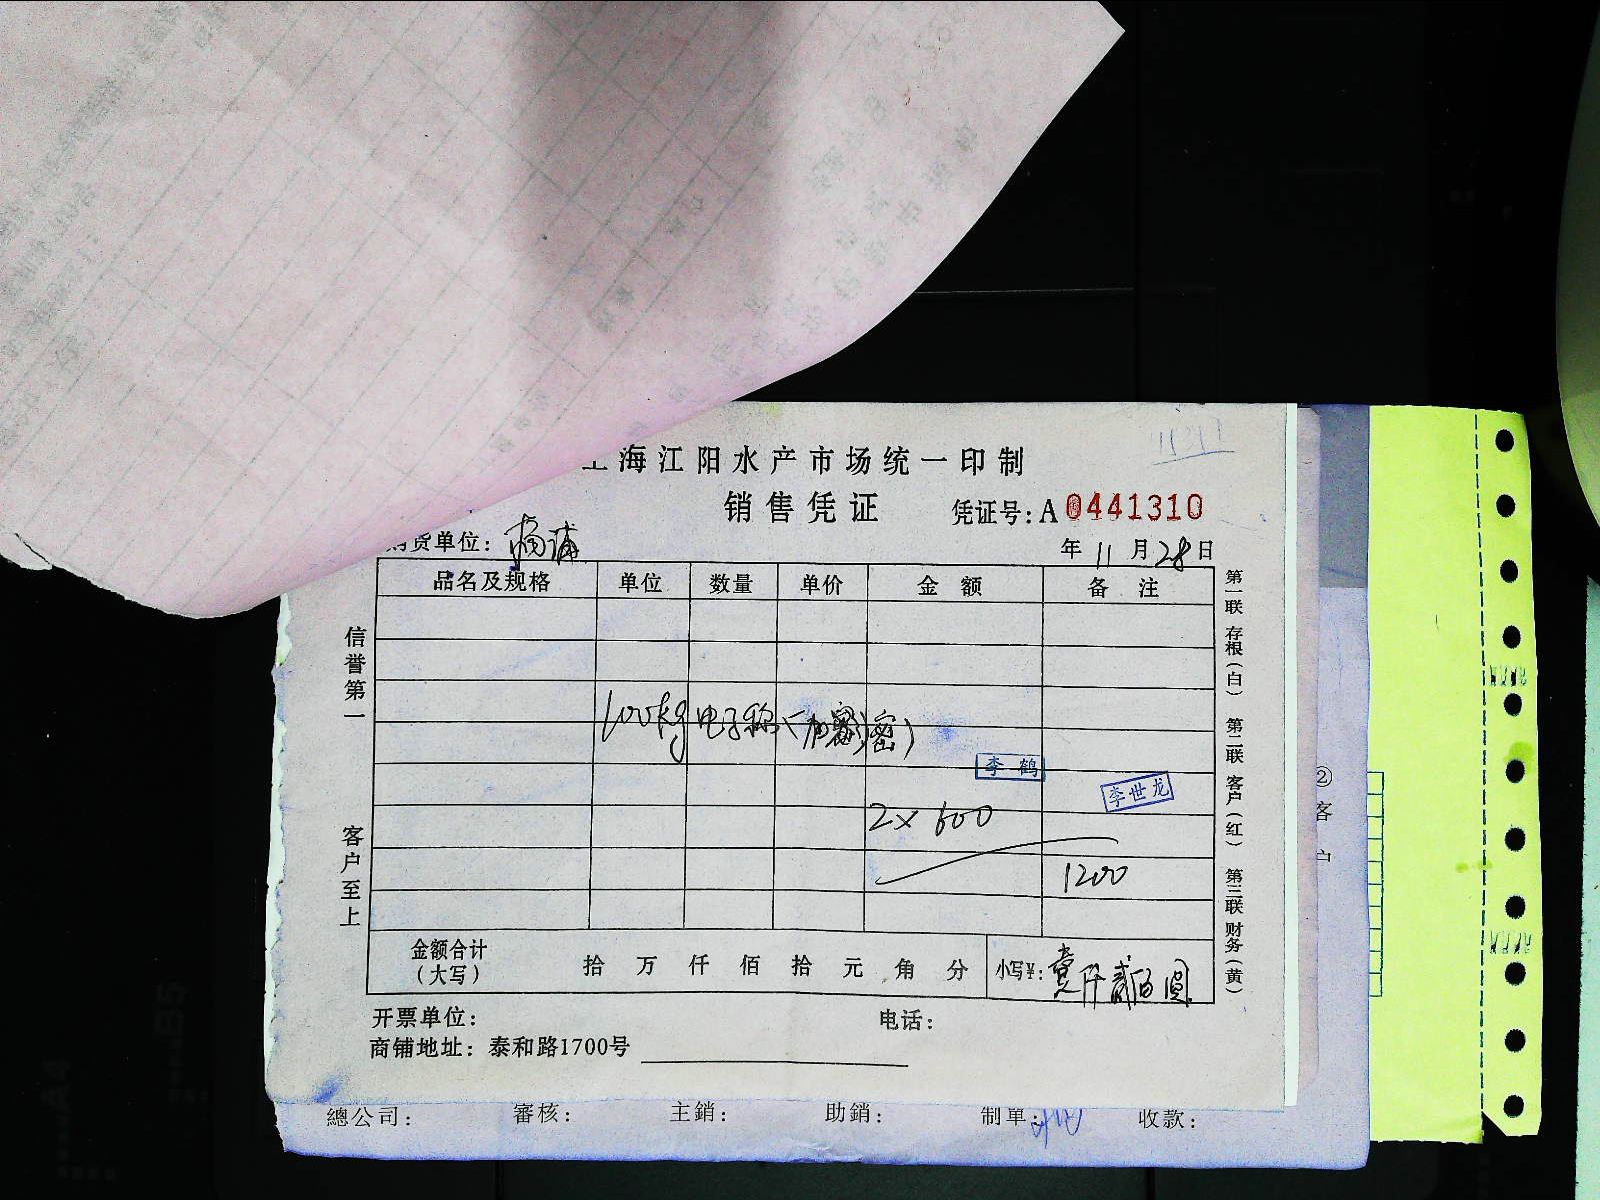 海江阳水产市场统一印制
销售凭证
凭证号:A 0441310
购货单位: 杨浦
年 11 月 28 日
品名及规格 单位 数量 单价 金额 备注
100kg 电子称(加密)
李鹤
李世龙
2×600
1200
金额合计(大写) 拾 万 仟 佰 拾 元 角 分 小写¥: 壹仟贰佰圆
开票单位: 电话:
商铺地址: 泰和路1700号
信誉第一
客户至上
第一联 存根(白) 第二联 客户(红) 第三联 财务(黄)
② 客户
總公司: 審核: 主銷: 助銷: 制單: 收款: